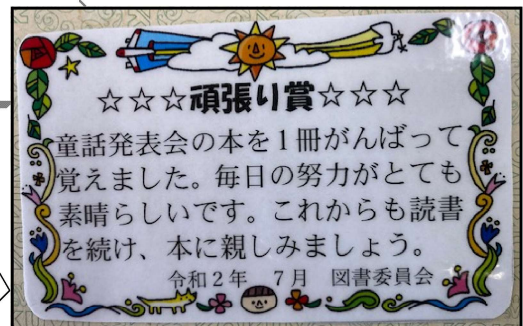 ☆☆☆頑張り賞☆☆☆
童話発表会の本を1冊がんばって
覚えました。毎日の努力がとても
素晴らしいです。これからも読書
を続け、本に親しみましょう。
令和2年 7月 図書委員会